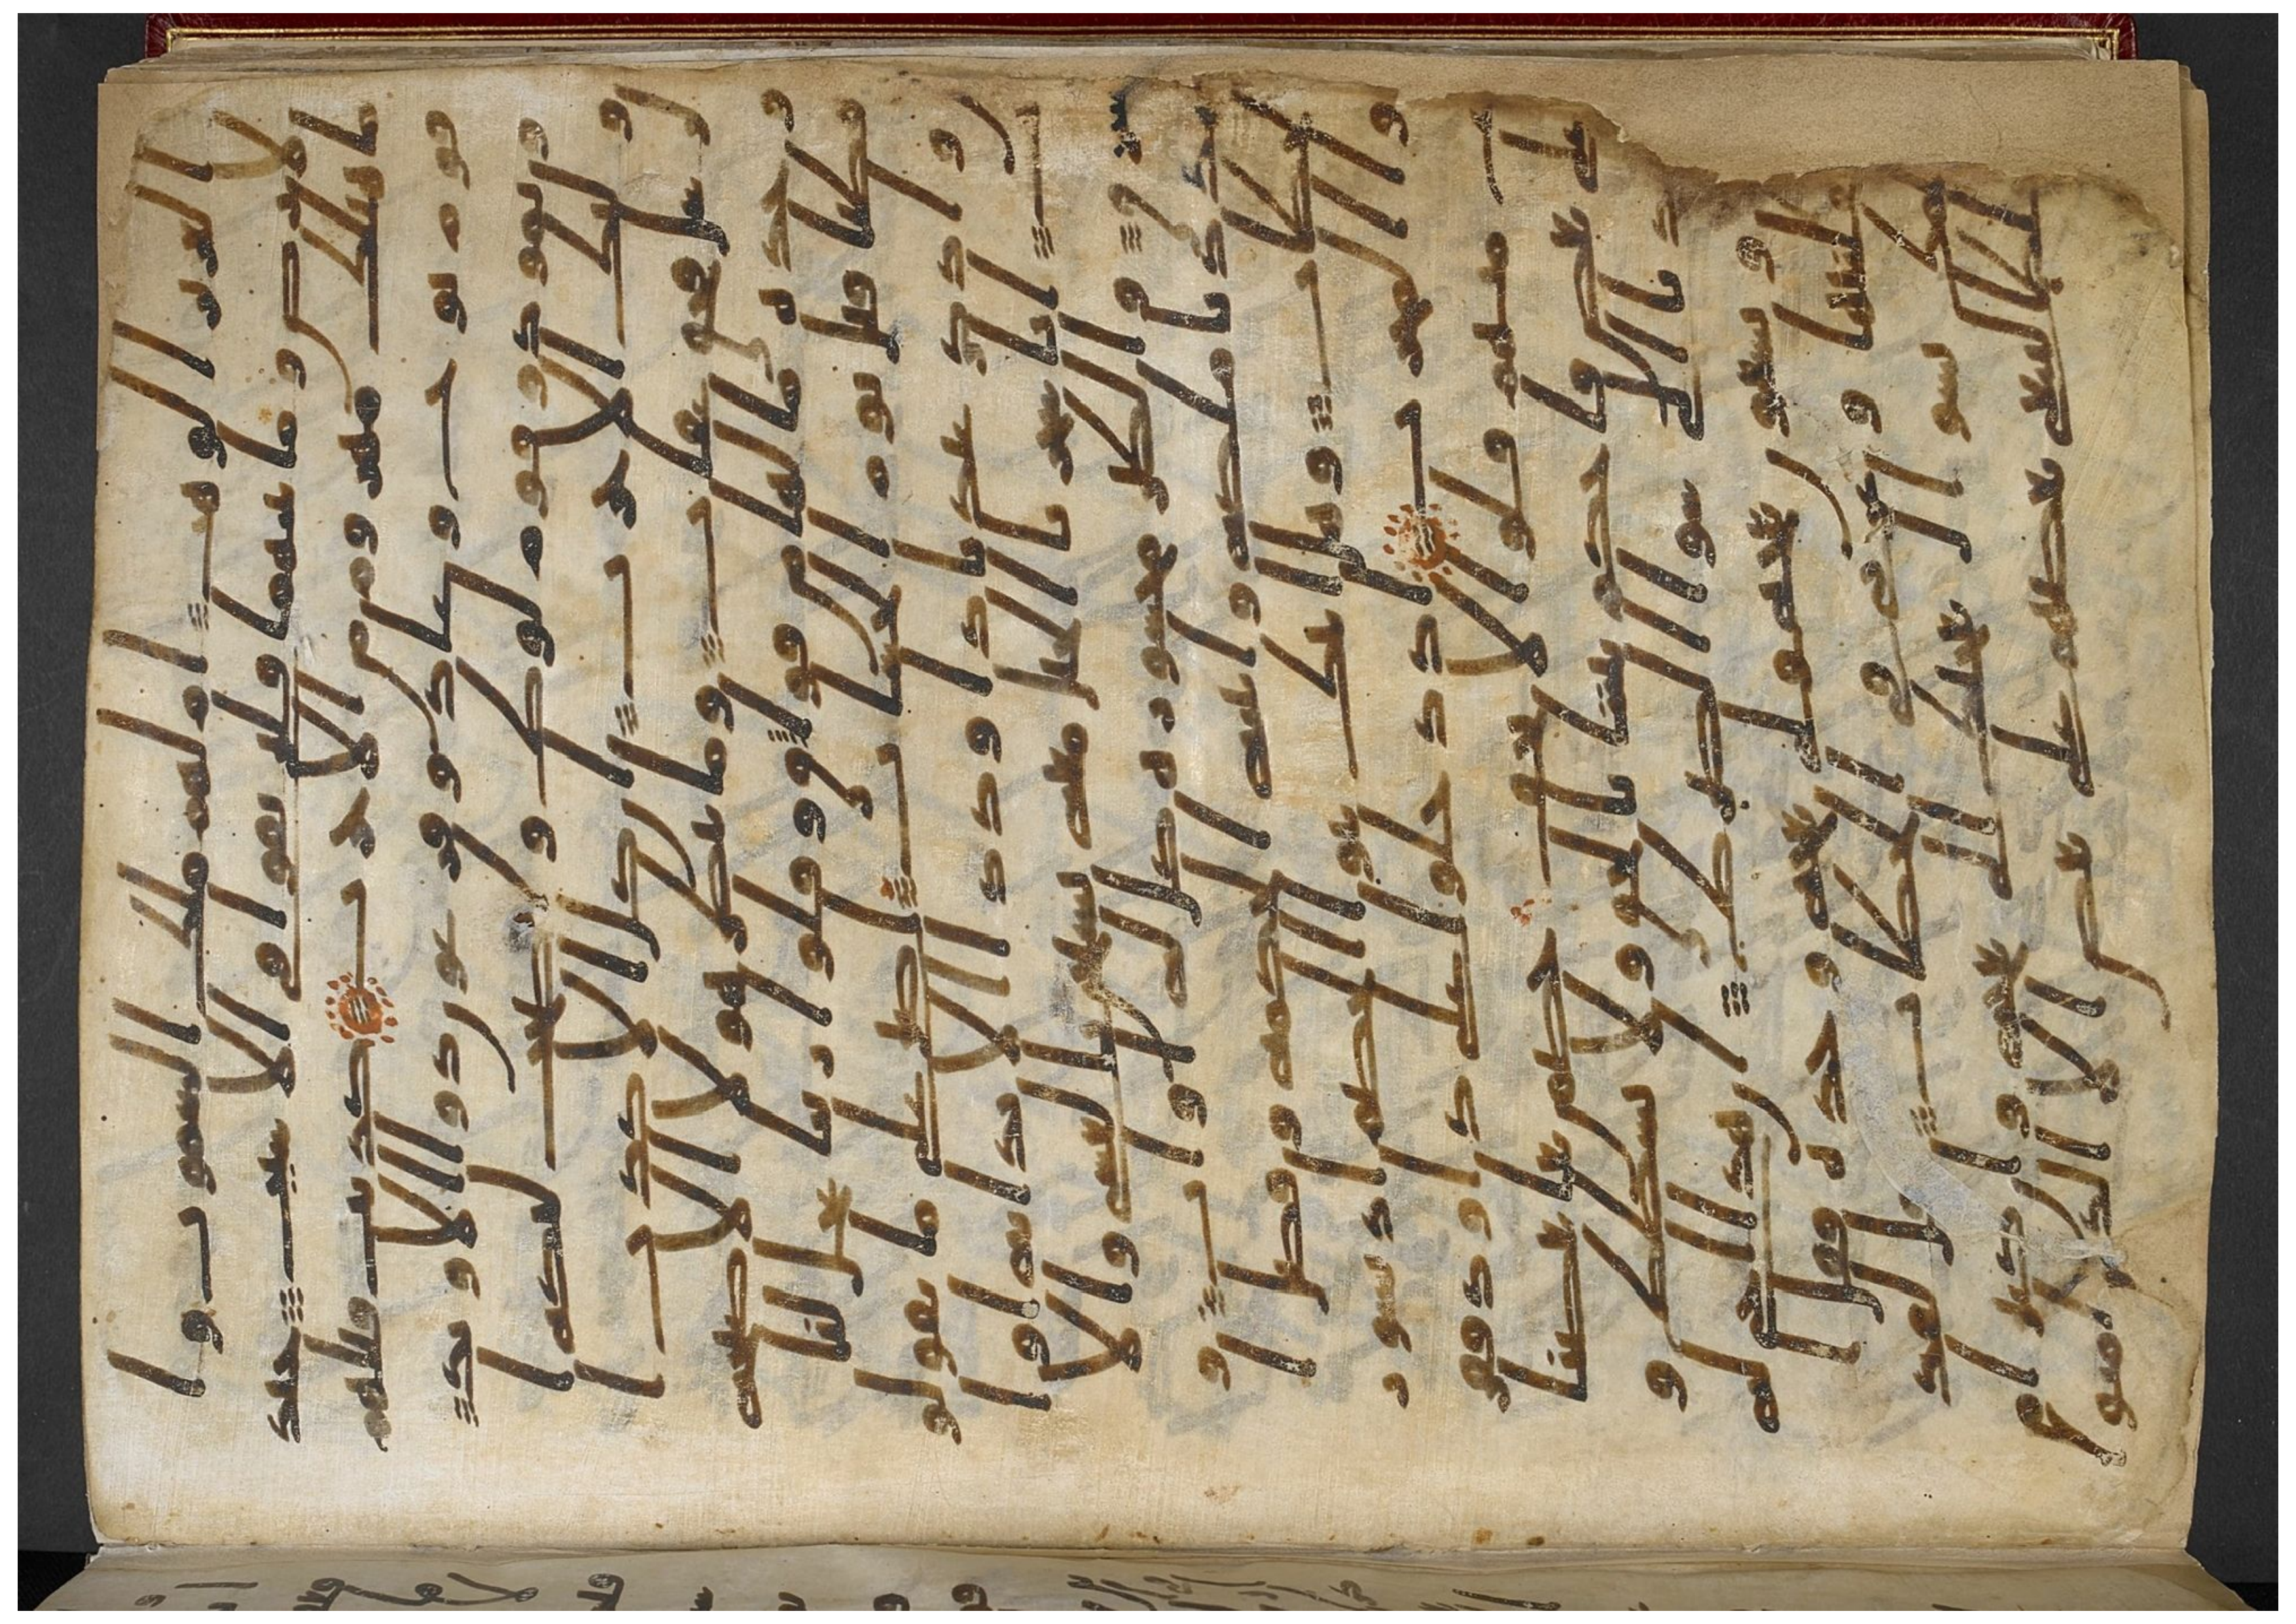 العزيز الوهب ام لهم ملك السموت وا
لارض وما بينهما فليرتقوا في الاسبب جند
ما هنلك مهزوم من الاحزب كذبت قبلهم
قوم نوح وعاد وفرعون ذو الاوتد
وثمود وقوم لوط واصحب لىكه ا
ولئك الاحزب ان كل الا كذب ا
لرسل فحق عقب وما ينظر هولا الا صيحه
وحده ما لها من فوق وقلوا ربنا عجل لنا
قطنا قبل يوم الحسب اصبر على ما يقولو
ن واذكر عبدنا داود ذا الايد انه اوا
ب انا سخرنا الجبل معه يسبحن بالعشي والا
شرق والطير محشوره كل له اوب و
شددنا ملكه واتينه الحكمه وفصل ا
لخطب وهل اتيك نبوا الخصم اذ تسور
وا المحرب اذ دخلوا على داود ففز
ع منهم قلوا لا تخف خصمن بغى بعضنا
على بعض فاحكم بيننا بالحق ولا تشطط وا
هدنا الى سوا الصرط ان هذا اخي له
تسع وتسعون نعجه ولي نعجه وحده فقل ا
كفلنيها وعزني في الخطب قل لقد
ظلمك بسول نعجتك الى نعجه وان كثيرا م
ن الخلطا ليبغي بعضهم على بعض الا الذين امنو